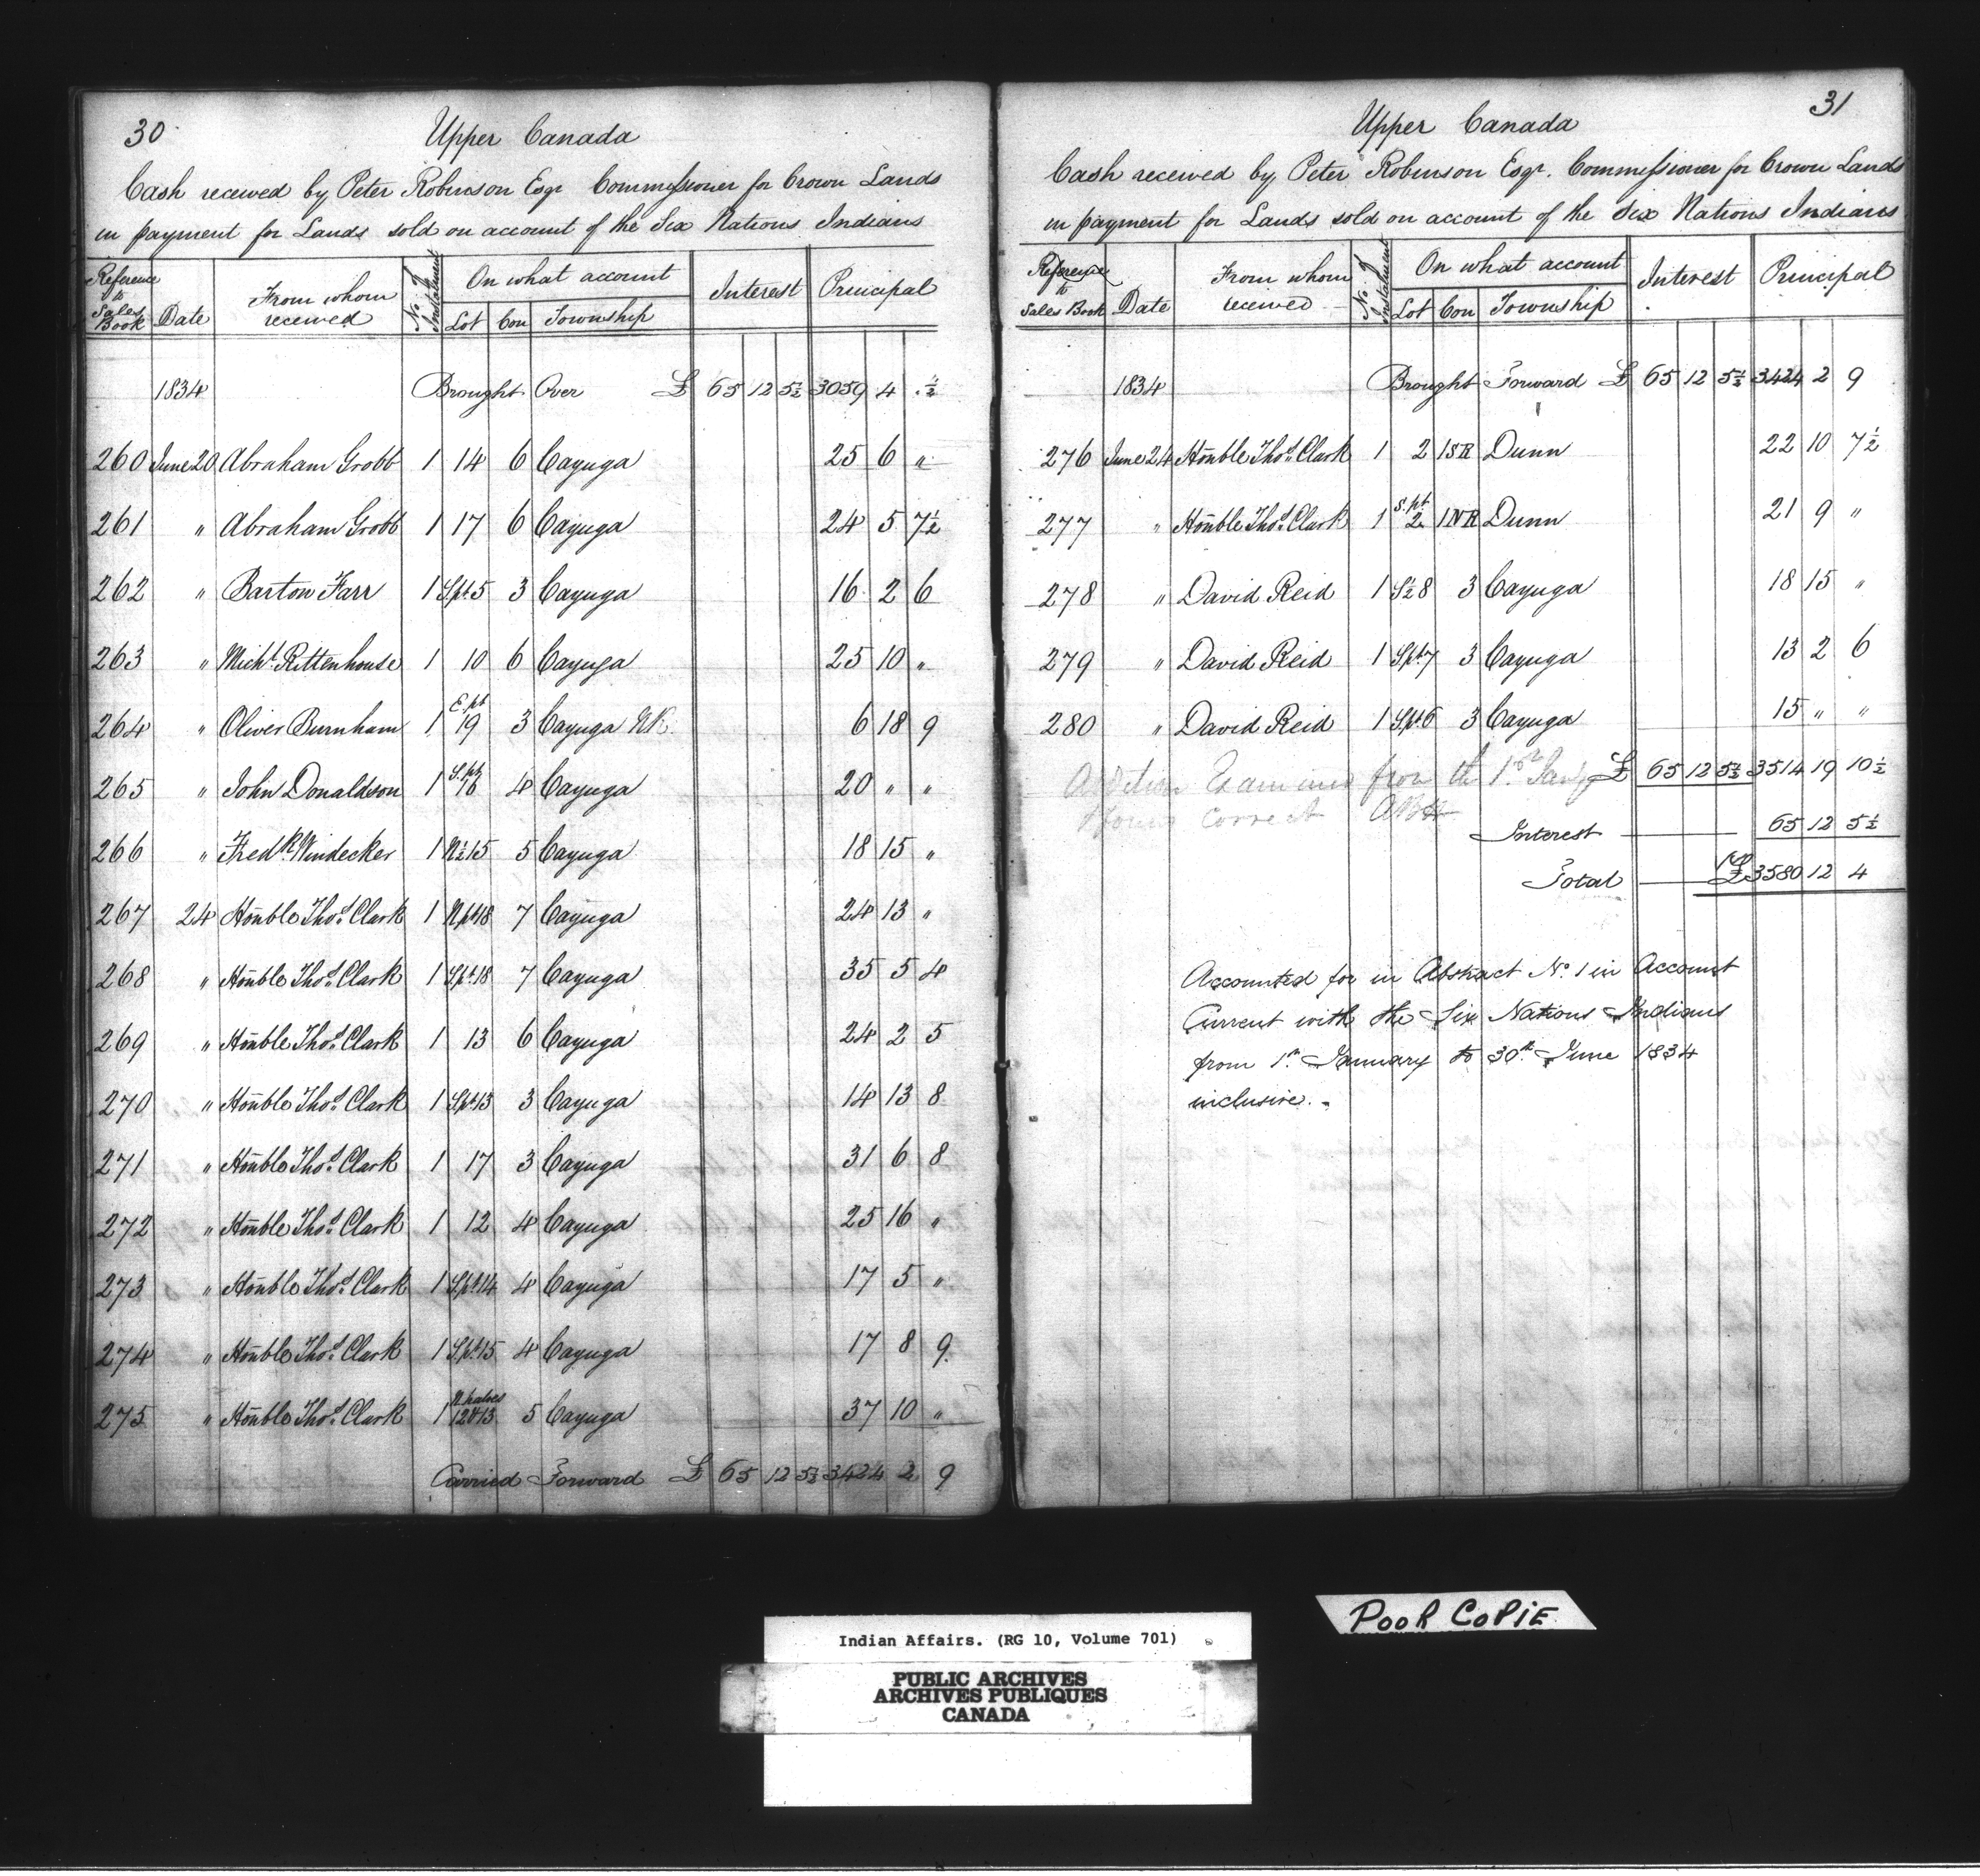 30
Upper Canada
Cash received by Peter Robinson Esqr Commissioner for Crown Lands
in payment for Lands sold on account of the Six Nations Indians
Reference to Sales Book Date From whom received No. of Instalment On what account Interest Principal
Lot Con Township
1834 Brought Over £ 65 12 5½ 3059 4 " ½
260 June 20 Abraham Grobb 1 14 6 Cayuga 25 6 "
261 " Abraham Grobb 1 17 6 Cayuga 24 5 7½
262 " Barton Farr 1 S.pt 5 3 Cayuga 16 2 6
263 " Michl. Rittenhouse 1 10 6 Cayuga 25 10 "
264 " Oliver Burnham 1 E.pt 19 3 Cayuga NR. 6 18 9
265 " John Donaldson 1 S.pt 16 4 Cayuga 20 " "
266 " Fredk. Windecker 1 N½ 15 5 Cayuga 18 15 "
267 24 Honble Thos. Clark 1 N.pt 18 7 Cayuga 24 13 "
268 " Honble Thos. Clark 1 S.pt 18 7 Cayuga 35 5 4
269 " Honble Thos. Clark 1 13 6 Cayuga 24 2 5
270 " Honble Thos. Clark 1 S.pt 13 3 Cayuga 14 13 8
271 " Honble Thos. Clark 1 17 3 Cayuga 31 6 8
272 " Honble Thos. Clark 1 12 4 Cayuga 25 16 "
273 " Honble Thos. Clark 1 S.pt 14 4 Cayuga 17 5 "
274 " Honble Thos. Clark 1 S.pt 15 4 Cayuga 17 8 9
275 " Honble Thos. Clark 1 N halves 12&13 5 Cayuga 37 10 "
Carried Forward £ 65 12 5½ 3424 2 9
31
Upper Canada
Cash received by Peter Robinson Esqr. Commissioner for Crown Lands
in payment for Lands sold on account of the Six Nations Indians
Reference to Sales Book Date From whom received No. of Instalment On what account Interest Principal
Lot Con Township
1834 Brought Forward £ 65 12 5½ 3424 2 9
276 June 24 Honble Thos. Clark 1 2 1SR Dunn 22 10 7½
277 " Honble Thos. Clark 1 S.pt 2 1NR Dunn 21 9 "
278 " David Reid 1 S½ 8 3 Cayuga 18 15 "
279 " David Reid 1 S.pt 7 3 Cayuga 13 2 6
280 " David Reid 1 S.pt 6 3 Cayuga 15 " "
£ 65 12 5½ 3514 19 10½
Addition Examined from the 1st Jany
& found correct
Interest 65 12 5½
Total £ 3580 12 4
Accounted for in Abstract No. 1 in Account
Current with the Six Nations Indians
from 1st. January to 30th. June 1834
inclusive.
POOR COPIE
Indian Affairs. (RG 10, Volume 701)
PUBLIC ARCHIVES
ARCHIVES PUBLIQUES
CANADA